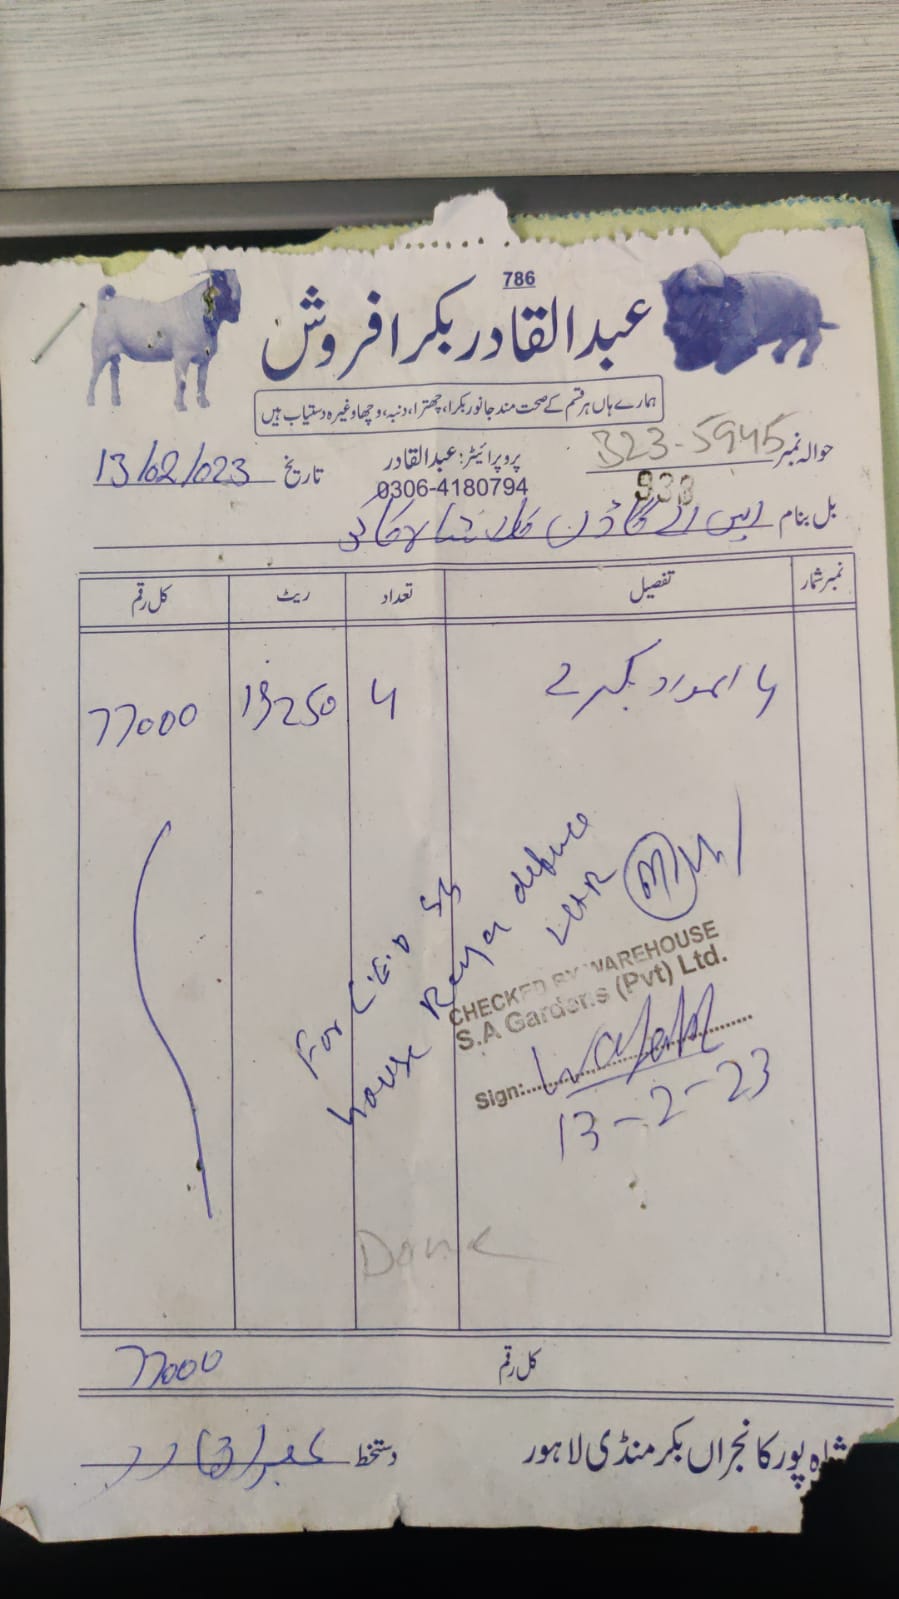 786
عبدالقادر بکرا فروش
ہمارے ہاں ہر قسم کے صحت مند جانور بکرا، چھترا، دنبہ، وچھا وغیرہ دستیاب ہیں
حوالہ نمبر 323-5945
پروپرائیٹر: عبدالقادر
تاریخ 13/02/023
0306-4180794
933
بل بنام ایس اے گارڈن
نمبر شمار تفصیل تعداد ریٹ کل رقم
4 بکرے 4 19250 77000
For C.E.O
house Raya defence
LHR
CHECKED BY WAREHOUSE
S.A Gardens (Pvt) Ltd.
Sign:
13-2-23
Done
کل رقم 77000
دستخط
شاہ پور کانجراں بکر منڈی لاہور